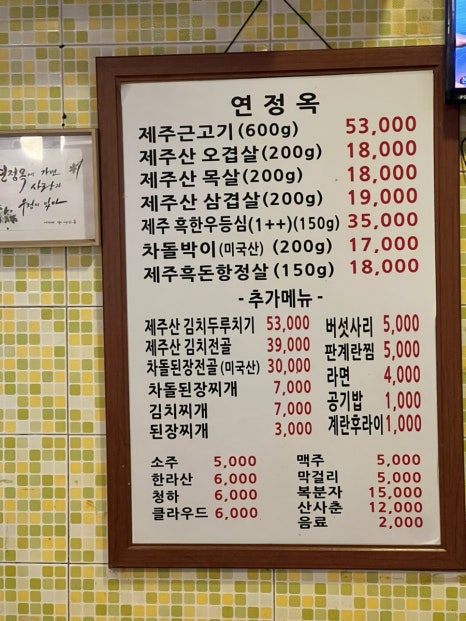 연정옥
제주근고기(600g) 53,000
제주산 오겹살(200g) 18,000
제주산 목살(200g) 18,000
제주산 삼겹살(200g) 19,000
제주 흑한우등심(1++)(150g) 35,000
차돌박이(미국산) (200g) 17,000
제주흑돈항정살(150g) 18,000
-추가메뉴-
제주산 김치두루치기 53,000
제주산 김치전골 39,000
차돌된장전골(미국산) 30,000
차돌된장찌개 7,000
김치찌개 7,000
된장찌개 3,000
버섯사리 5,000
판계란찜 5,000
라면 4,000
공기밥 1,000
계란후라이 1,000
소주 5,000
한라산 6,000
청하 6,000
클라우드 6,000
맥주 5,000
막걸리 5,000
복분자 15,000
산사춘 12,000
음료 2,000
연정옥에 가면
사랑과
우정이 있다